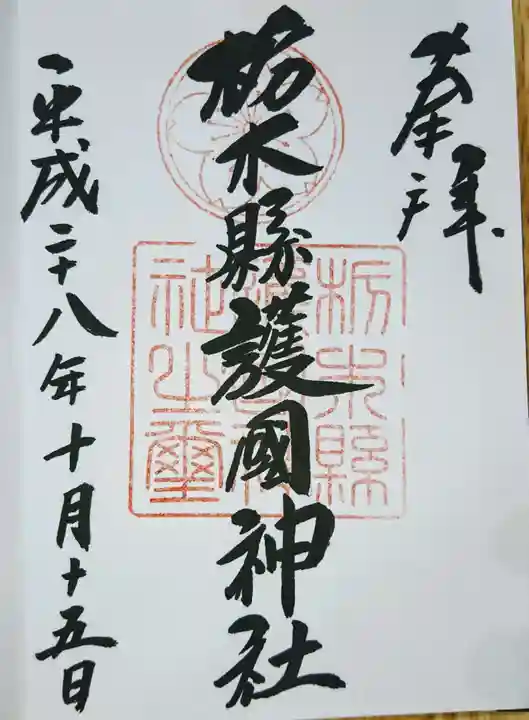 奉拝
栃木縣護國神社
平成二十八年十月十五日
栃木縣護國神社之璽